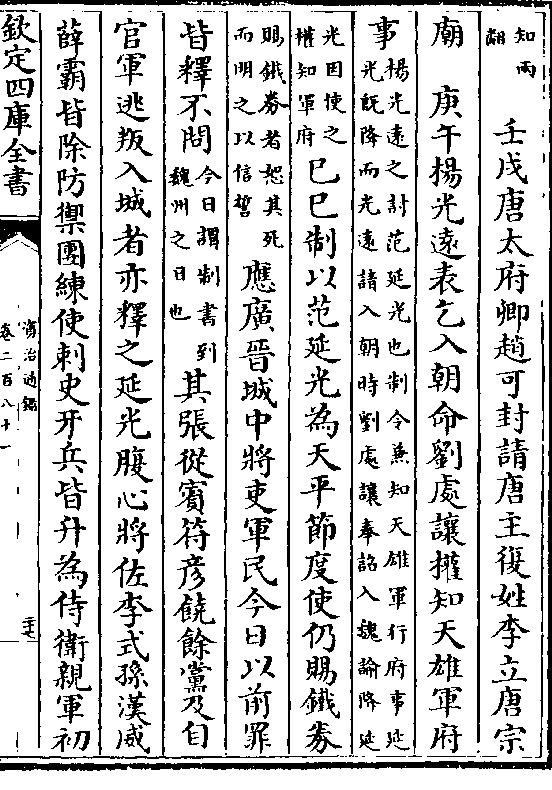 知兩翻 壬戌唐太府卿趙可封請唐主復姓李立唐宗
廟 庚午楊光遠表乞入朝命劉處讓權知天雄軍府
事 楊光遠之討范延光也制令兼知天雄軍行府事延
光既降而光遠請入朝時劉處讓奉詔入魏諭降延
光因使之
權知軍府 巳巳制以范延光為天平節度使仍賜鐵券
賜鐵券者恕其死
而明之以信誓 應廣晉城中將吏軍民今日以前罪
皆釋不問 今日謂制書到
魏州之日也 其張從賓符彦饒餘黨及自
官軍逃叛入城者亦釋之延光腹心將佐李式孫漢威
薛霸皆除防禦團練使刺史牙兵皆升為侍衛親軍初
欽定四庫全書
資治通鑑
卷二百八十一